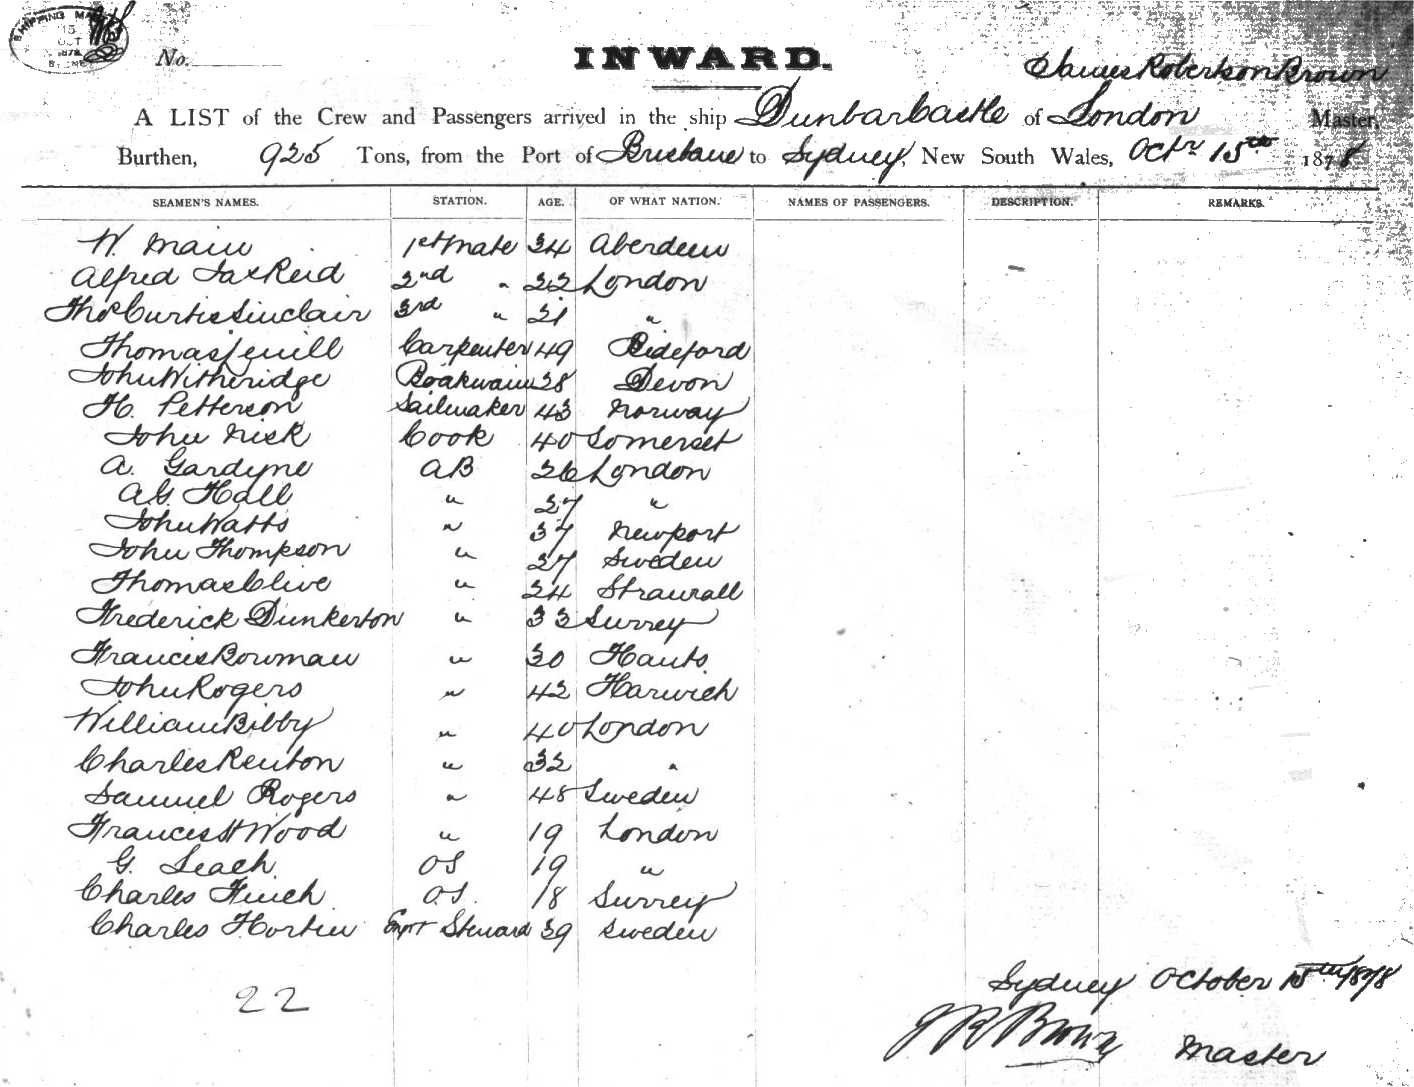 SHIPPING MA
15
OCT
1878
No.
INWARD.
James Robertson Brown
A LIST of the Crew and Passengers arrived in the ship Dunbar Castle of London Master,
Burthen, 925 Tons, from the Port of Brisbane to Sydney, New South Wales, Octr 15th 1878
SEAMEN'S NAMES. STATION. AGE. OF WHAT NATION. NAMES OF PASSENGERS. DESCRIPTION. REMARKS.
W. Main 1st mate 34 Aberdeen
Alfred Jas Reid 2nd " 22 London
Thos Curtis Sinclair 3rd " 21 "
Thomas Carpenter 49 Bideford
John Witheridge Boatswain 38 Devon
H. Petterson Sailmaker 43 Norway
John Nick Cook 40 Somerset
A. Gardyne AB 26 London
A.G. Hall " 27 "
John Watts " 37 Newport
John Thompson " 27 Sweden
Thomas Clive " 24
Frederick Dunkerton " 33 Surrey
Francis Bowman " 30 Hants
John Rogers " 42 Harwich
William Bibby " 40 London
Charles Renton " 32 "
Samuel Rogers " 48 Sweden
Francis H Wood " 19 London
G. Leach OS 19 "
Charles Finch O.S. 18 Surrey
Charles Hortin Steward 39 Sweden
22
Sydney October 15th 1878
J R Brown Master